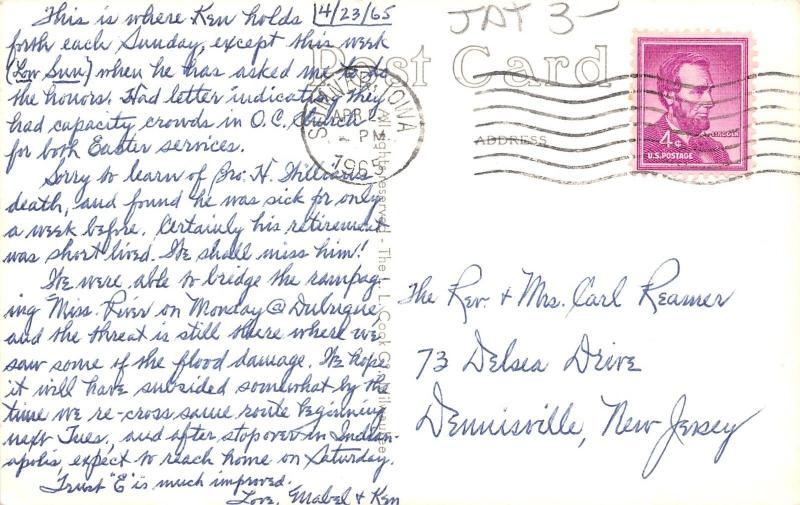 This is where Ken holds 4/23/65
forth each Sunday, except this week
(Low Sun) when he has asked me to do
the honors. Had letter indicating they
had capacity crowds in O.C. Church
for both Easter services.
Sorry to learn of Bro. H. Williams
death, and found he was sick for only
a week before. Certainly his retirement
was short lived. We shall miss him!
We were able to bridge the rampag-
ing Miss. River on Monday @ Dubuque,
and the threat is still there where we
saw some of the flood damage. We hope
it will have subsided somewhat by the
time we re-cross same route beginning
next Tues, and after stopover in Indian-
apolis, expect to reach home on Saturday.
Trust "E" is much improved.
Love, Mabel & Ken
JAT 3-
Post Card
ADDRESS
IOWA
APR 2
PM
1965
LINCOLN
4¢
U.S. POSTAGE
All Rights Reserved - The L. L. Cook Co., Milwaukee
The Rev. & Mrs. Carl Reamer
73 Delsea Drive
Dennisville, New Jersey